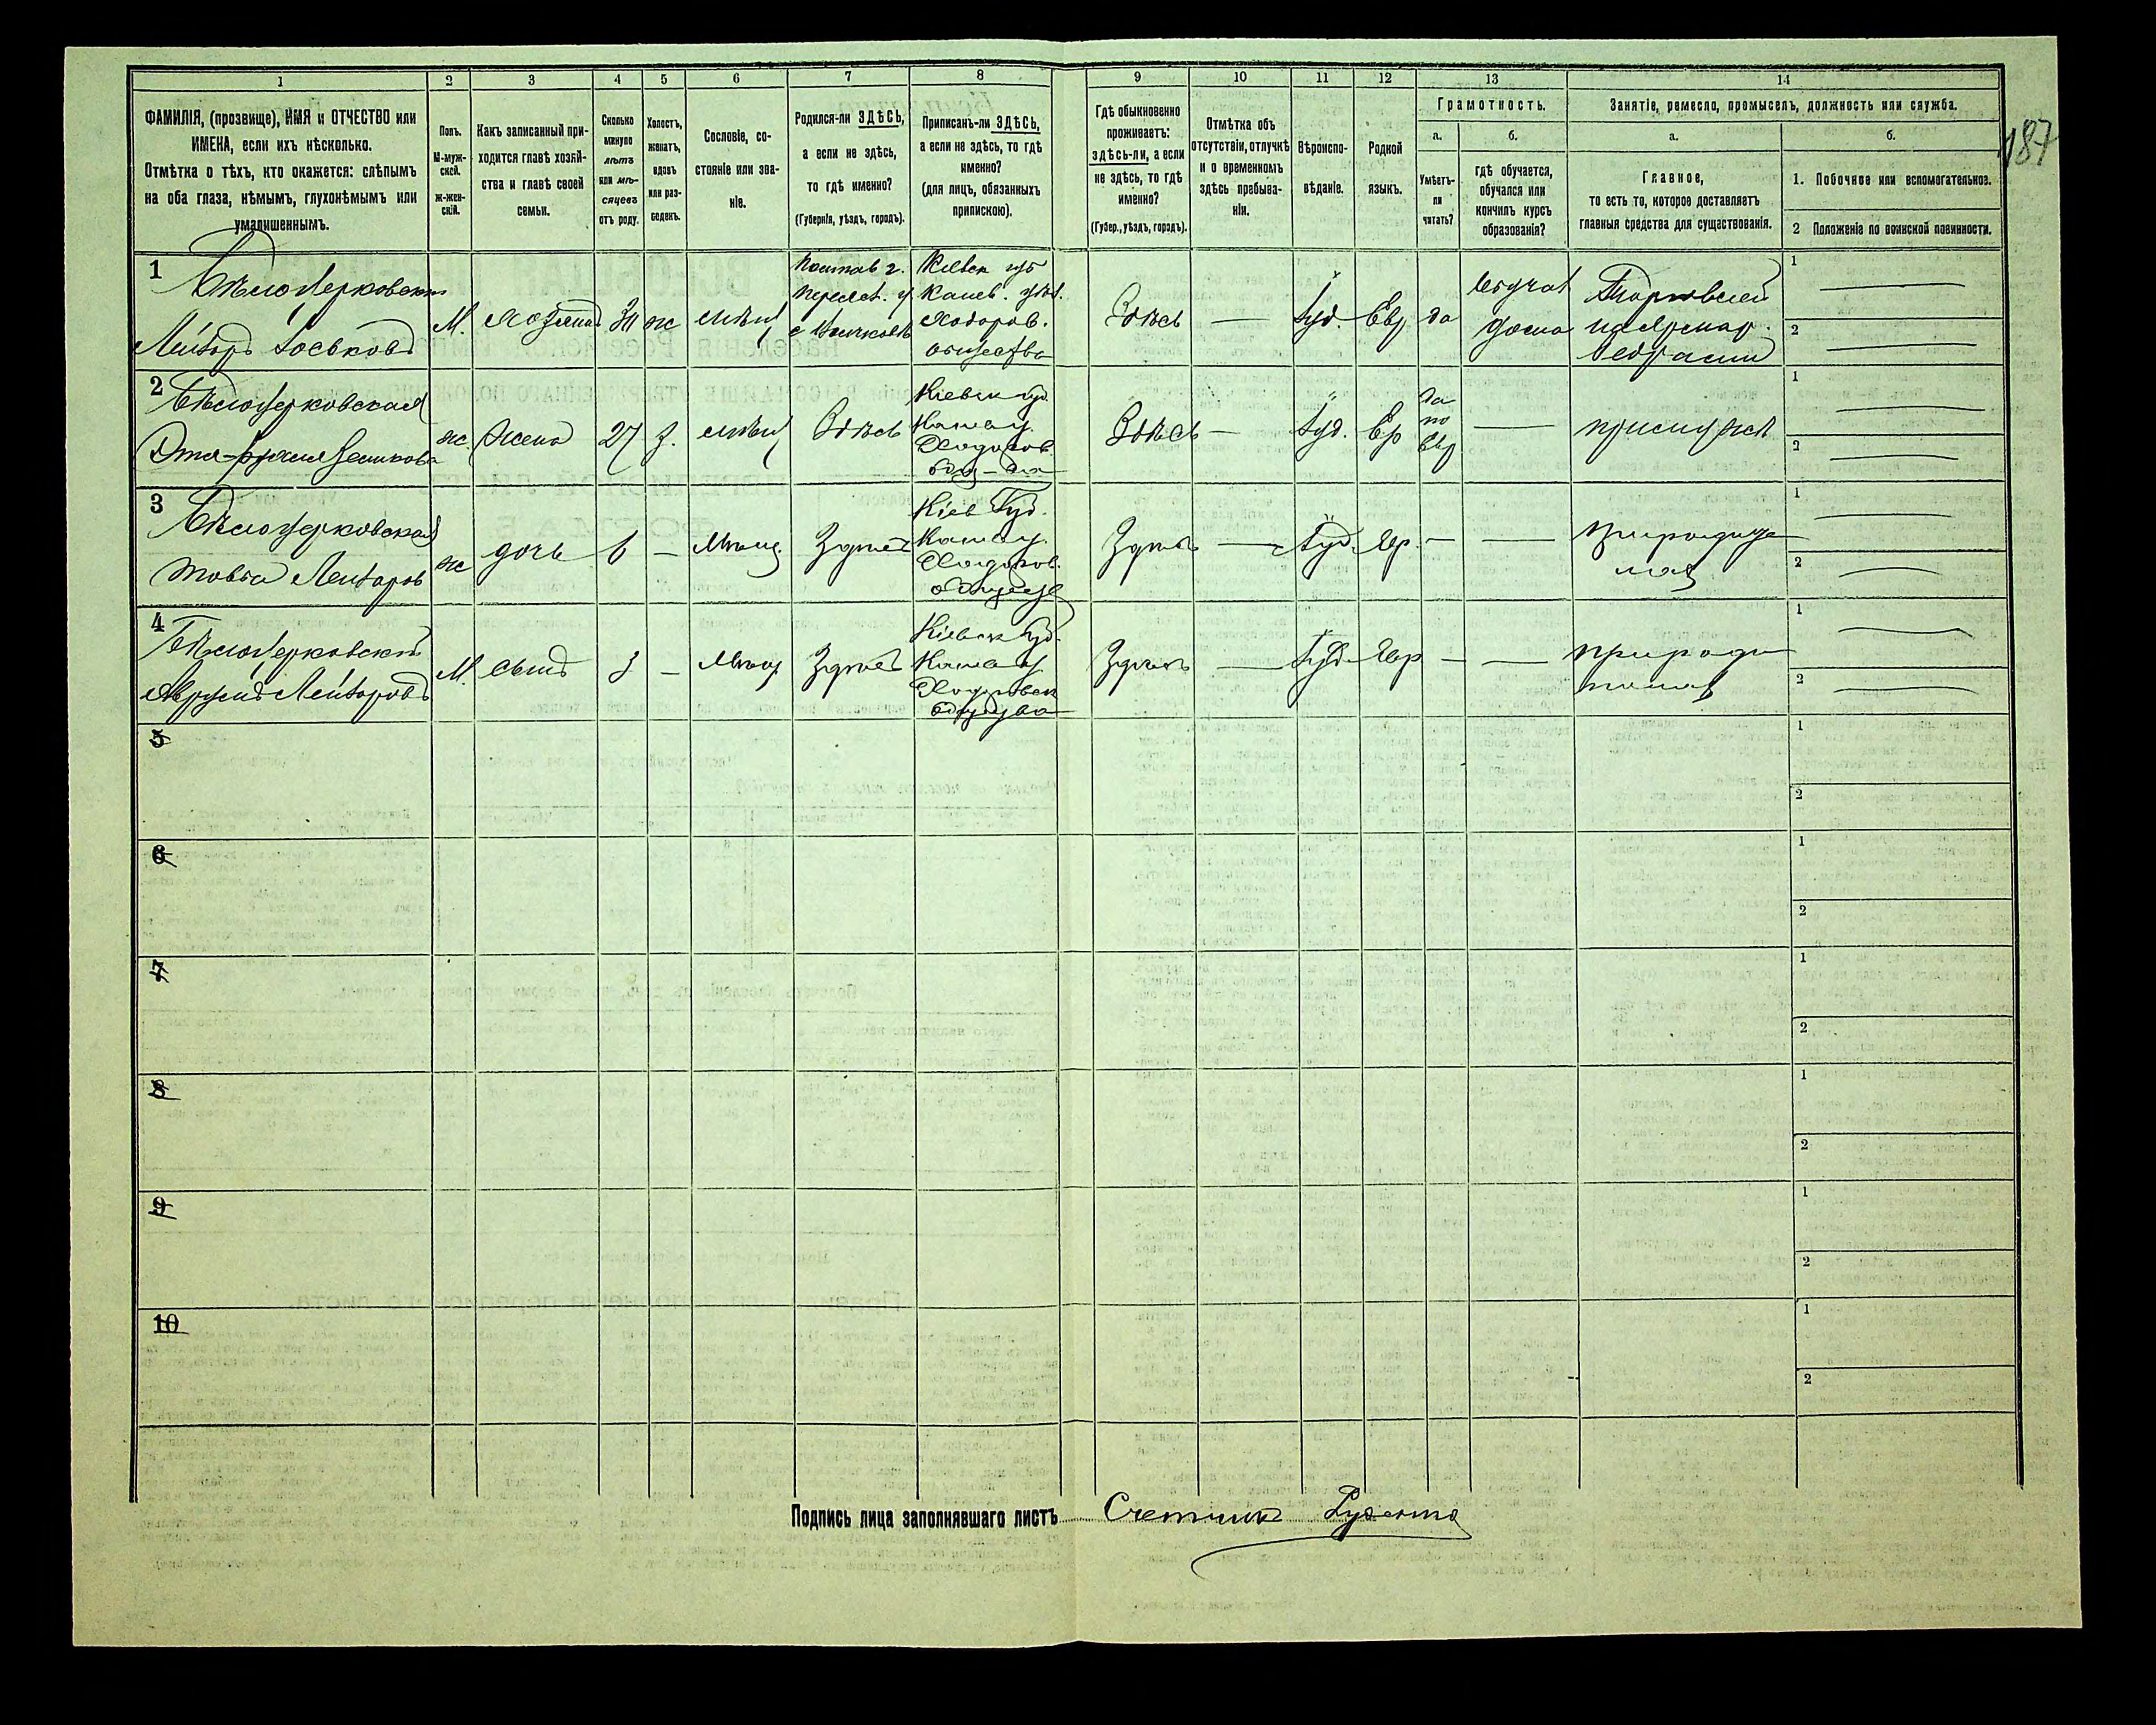 1
2
3
4
5
6
7
8
9
10
11
12
13
14
ФАМИЛІЯ, (прозвище), ИМЯ и ОТЧЕСТВО или
ИМЕНА, если ихъ нѣсколько.
Отмѣтка о тѣхъ, кто окажется: слѣпымъ
на оба глаза, нѣмымъ, глухонѣмымъ или
умалишеннымъ.
Полъ.
М-муж-
ской.
ж-жен-
скій.
Какъ записанный при-
ходится главѣ хозяй-
ства и главѣ своей
семьи.
Сколько
минуло
лѣтъ
или мѣ-
сяцевъ
отъ роду.
Холостъ,
женатъ,
вдовъ
или раз-
веденъ.
Сословіе, со-
стояніе или зва-
ніе.
Родился-ли ЗДѢСЬ,
а если не здѣсь,
то гдѣ именно?
(Губернія, уѣздъ, городъ).
Приписанъ-ли ЗДѢСЬ,
а если не здѣсь, то гдѣ
именно?
(для лицъ, обязанныхъ
припискою).
Гдѣ обыкновенно
проживаетъ:
здѣсь-ли, а если
не здѣсь, то гдѣ
именно?
(Губер., уѣздъ, городъ).
Отмѣтка объ
отсутствіи, отлучкѣ
и о временномъ
здѣсь пребыва-
ніи.
Вѣроиспо-
вѣданіе.
Родной
языкъ.
Грамотность.
а.
б.
Умѣетъ-
ли
читать?
гдѣ обучается,
обучался или
кончилъ курсъ
образованія?
Занятіе, ремесло, промыселъ, должность или служба.
а.
б.
Главное,
то есть то, которое доставляетъ
главныя средства для существованія.
1. Побочное или вспомогательное.
2 Положеніе по воинской повинности.
187
1
Бѣлоцерковскій
Лейзоръ Іоськовъ
М.
хозяинъ
ж
Полтав г.
Переясл. у
Кіевск губ
Канев. уѣз.
Ходоров.
общества
Здѣсь
—
Іуд.
Евр
да
дома
Торговлей
1
2
2
Бѣлоцерковская
ж.
Жена
27
з.
Здѣсь
Кіевск губ.
Канев у.
Ходоров.
Здѣсь
—
Іуд.
Ев
да
по
Евр
—
при мужѣ
1
2
3
Бѣлоцерковская
Товба Лейзоров
ж
дочь
6
—
Мѣщ.
Здѣсь
Кіев Губ.
Канев у.
Ходоров.
Здѣсь
—
Іуд.
Евр.
—
—
При родите
ляхъ
1
2
4
Бѣлоцерковскій
Аврумъ Лейзоровъ
М.
сынъ
3
—
Мѣщ
Здѣсь
Кіевск Губ.
Канев у
Ходоровск
общества
Здѣсь
—
Іуд
Евр
—
—
при роди
теляхъ
1
2
5
1
2
6
1
2
7
1
2
8
1
2
9
1
2
10
1
2
Подпись лица заполнявшаго листъ Счетчикъ